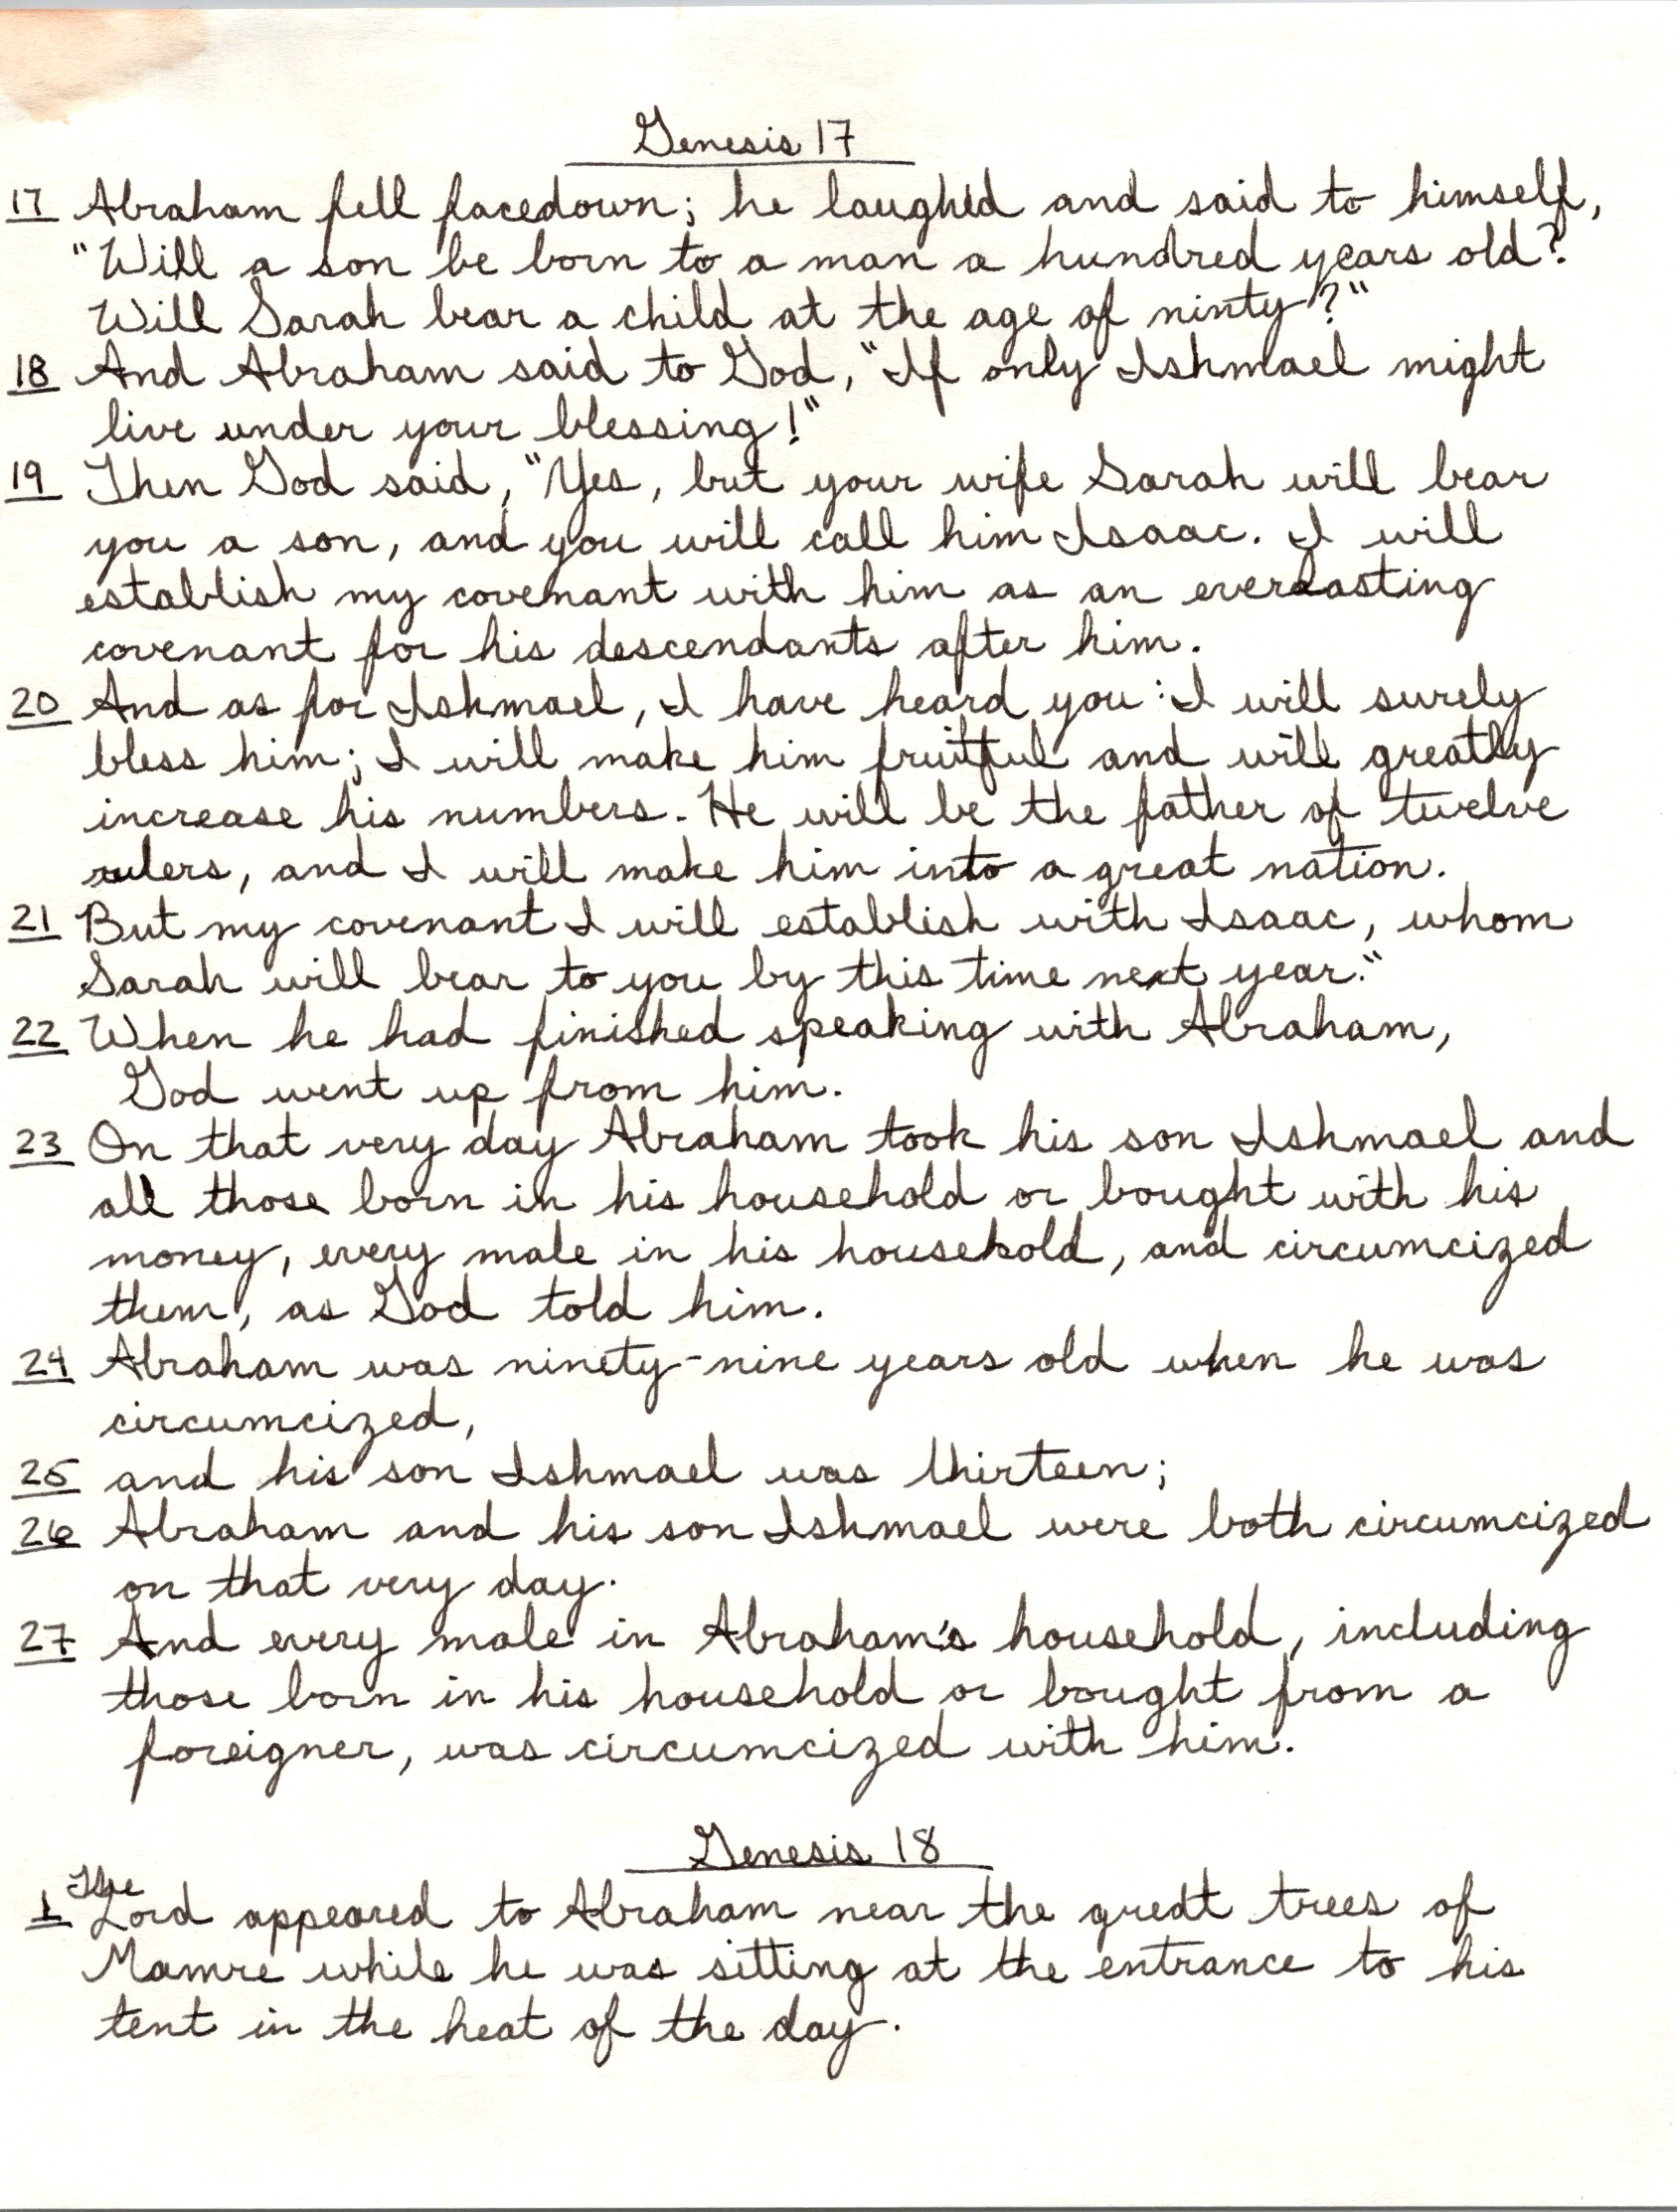 Genesis 17
17 Abraham fell facedown; he laughed and said to himself,
"Will a son be born to a man a hundred years old?
Will Sarah bear a child at the age of ninty?"
18 And Abraham said to God, "If only Ishmael might
live under your blessing!"
19 Then God said, "Yes, but your wife Sarah will bear
you a son, and you will call him Isaac. I will
establish my covenant with him as an everlasting
covenant for his descendants after him.
20 And as for Ishmael, I have heard you: I will surely
bless him; I will make him fruitful and will greatly
increase his numbers. He will be the father of twelve
rulers, and I will make him into a great nation.
21 But my covenant I will establish with Isaac, whom
Sarah will bear to you by this time next year."
22 When he had finished speaking with Abraham,
God went up from him.
23 On that very day Abraham took his son Ishmael and
all those born in his household or bought with his
money, every male in his household, and circumcized
them, as God told him.
24 Abraham was ninety-nine years old when he was
circumcized,
25 and his son Ishmael was thirteen;
26 Abraham and his son Ishmael were both circumcized
on that very day.
27 And every male in Abraham's household, including
those born in his household or bought from a
foreigner, was circumcized with him.
Genesis 18
1 The Lord appeared to Abraham near the great trees of
Mamre while he was sitting at the entrance to his
tent in the heat of the day.